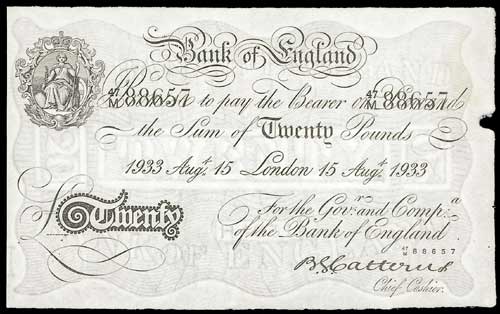 Bank of England
47/M 88657 47/M 88657
I Promise to pay the Bearer on Demand
the Sum of Twenty Pounds
1933 Augt. 15 London 15 Augt. 1933
For the Govr. and Compa.
£Twenty of the Bank of England
47/M 88657
B.G. Catterns
Chief Cashier.